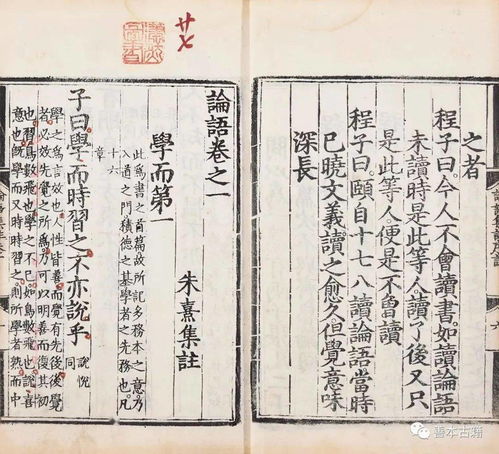 之者
程子曰今人不會讀書如讀論語
未讀時是此等人讀了後又只
是此等人便是不曾讀
程子曰頤自十七八讀論語當時
已曉文義讀之愈久但覺意味
深長
論語卷之一
朱熹集註
學而第一
此爲書之首篇故所記多務本之意乃
入道之門積德之基學者之先務也凡
十六
章
子曰學而時習之不亦說乎
說悅
同
學之爲言效也人性皆善而覺有先後後覺
者必效先覺之所爲乃可以明善而復其初
也習鳥數飛也學之不已如鳥數飛也說喜
意也旣學而又時時習之則所學者熟而中
善本古籍